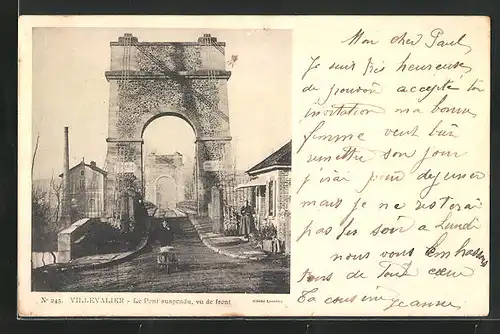 Mon cher Paul
Je suis très heureuse
de pouvoir accepter ta
invitation ma bonne
femme veut bien
remettre son jour
j'irai pour dejeuner
mais je ne resterai
pas le soir à Lundi
nous vous embrassons
tous de Tout cœur
Ta cousine Jeanne
N° 245. VILLEVALIER - Le Pont suspendu, vu de front